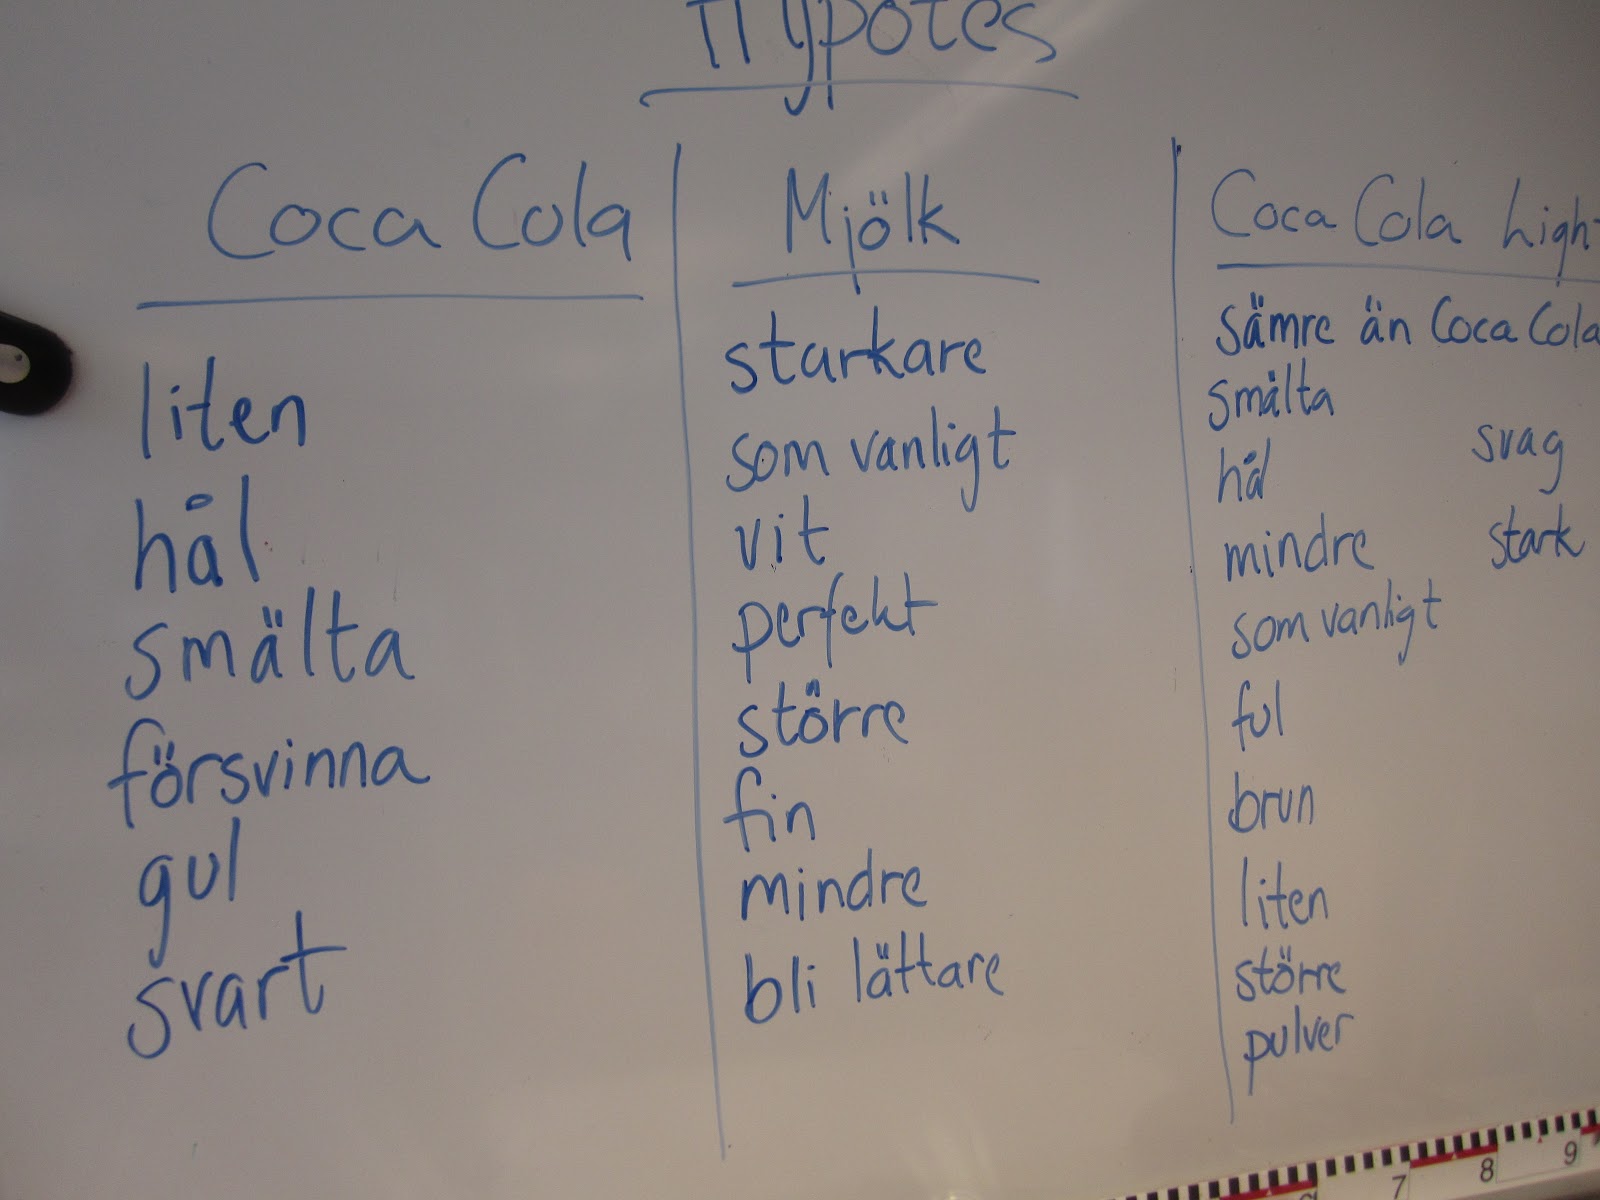 Hypotes
Coca Cola
liten
hål
smälta
försvinna
gul
svart
Mjölk
starkare
som vanligt
vit
perfekt
större
fin
mindre
bli lättare
Coca Cola Light
sämre än Coca Cola
smälta
hål svag
mindre stark
som vanligt
ful
brun
liten
större
pulver
7 8 9